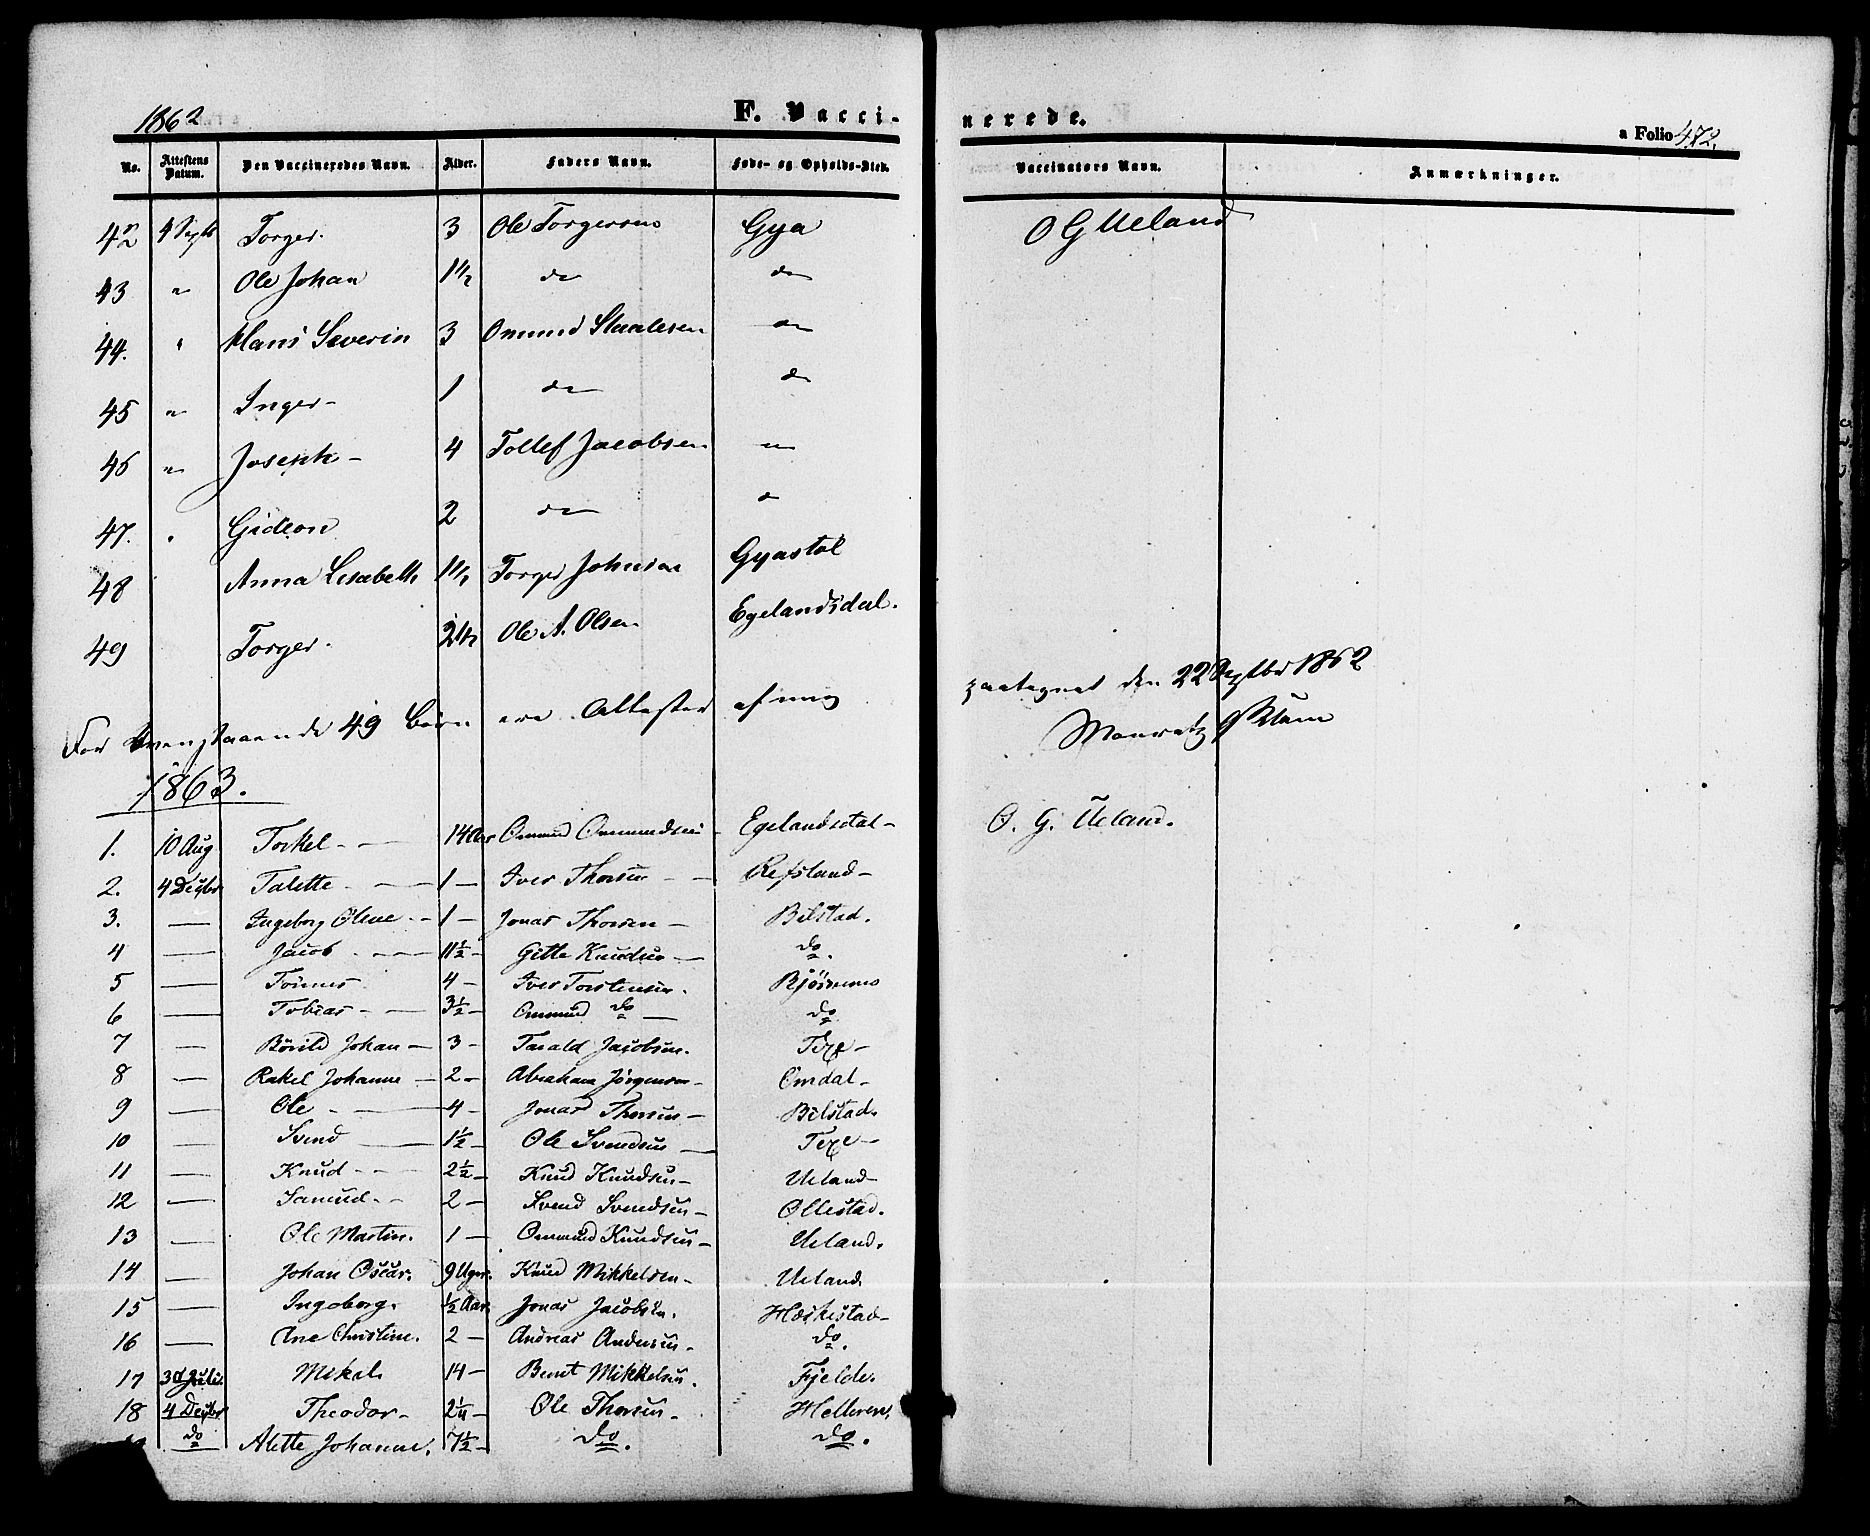 1862 F. Vaccinerede. a Folio 472.
No. Attestens Datum. Den Vaccineredes Navn. Alder. Faders Navn. Føde- og Opholds-Sted. Vaccinators Navn. Anmærkninger.
42 4 Septb Torger. 3 Ole Torgersen Gya O G Ueland
43 " Ole Johan 1 1/2 do do
44. " Hans Severin 3 Omund Staalesen do
45 " Inger - 1 do do
46 " Joseph - 4 Tollef Jacobsen "
47. " Gideon 2 do do
48 Anna Lisabeth 1 1/2 Torger Johnsen Gyastøl
49 Torger. 2 1/2 Ole A. Olsen Egelandsdal.
For ovenstaaende 49 Børn ere Attester af mig paategnet den 22 Septbr 1862
1863.
1. 10 Aug Torkel - 14 Aar Omund Ommundsen - Egelandsdal - O. G. Ueland.
2. 4 Decbr Talette - 1 - Iver Thorsen - Refsland -
3. — Ingeborg Oline - 1 - Jonas Thorsen - Bilstad.
4 — Jacob - 1 1/2 - Gitle Knudsen - do.
5 — Tønnes 4 - Iver Torstensen. Bjørnemo
6 — Tobias - 3 1/2 - Ommund do — do
7 — Børild Johan - 3 - Tarald Jacobsen. Texe -
8 — Rakel Johanne - 2 - Abraham Jørgensen - Omdal -
9 — Ole - 4 - Jonas Thorsen - Bilstad.
10 — Svend — 1 1/2 - Ole Svendsen — Texe -
11 — Knud - 2 1/2 - Knud Knudsen - Ueland -
12 — Samuel - 2 - Svend Svendsen - Ollestad.
13 — Ole Martin. 1 - Ommund Knudsen - Ueland.
14 — Johan Oscar. 9 Uger. Knud Mikkelsen - Ueland.
15 — Ingeborg. 1/2 Aar. Jonas Jacobsen. Hæskestad -
16 — Ane Christine. 2 - Andreas Andersen - do.
17 30 Juli. Mikal. 14 - Bernt Mikkelsen. Fjelde.
18 4 Decbr Theodor - 2 1/4 - Ole Thorsen - Helleren.
do Alette Johanne. 7 1/2 - do. do.